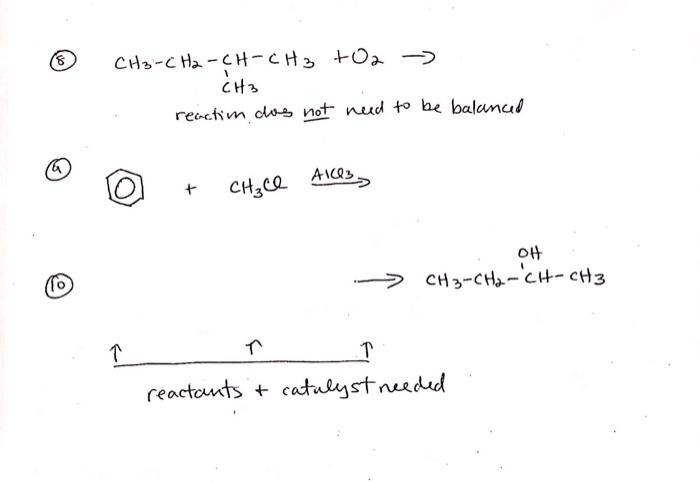 8 CH3-CH2-CH-CH3 + O2 →
CH3
reaction does not need to be balanced
9 + CH3Cl AlCl3 →
OH
10 → CH3-CH2-CH-CH3
↑ ↑ ↑
reactants + catalyst needed